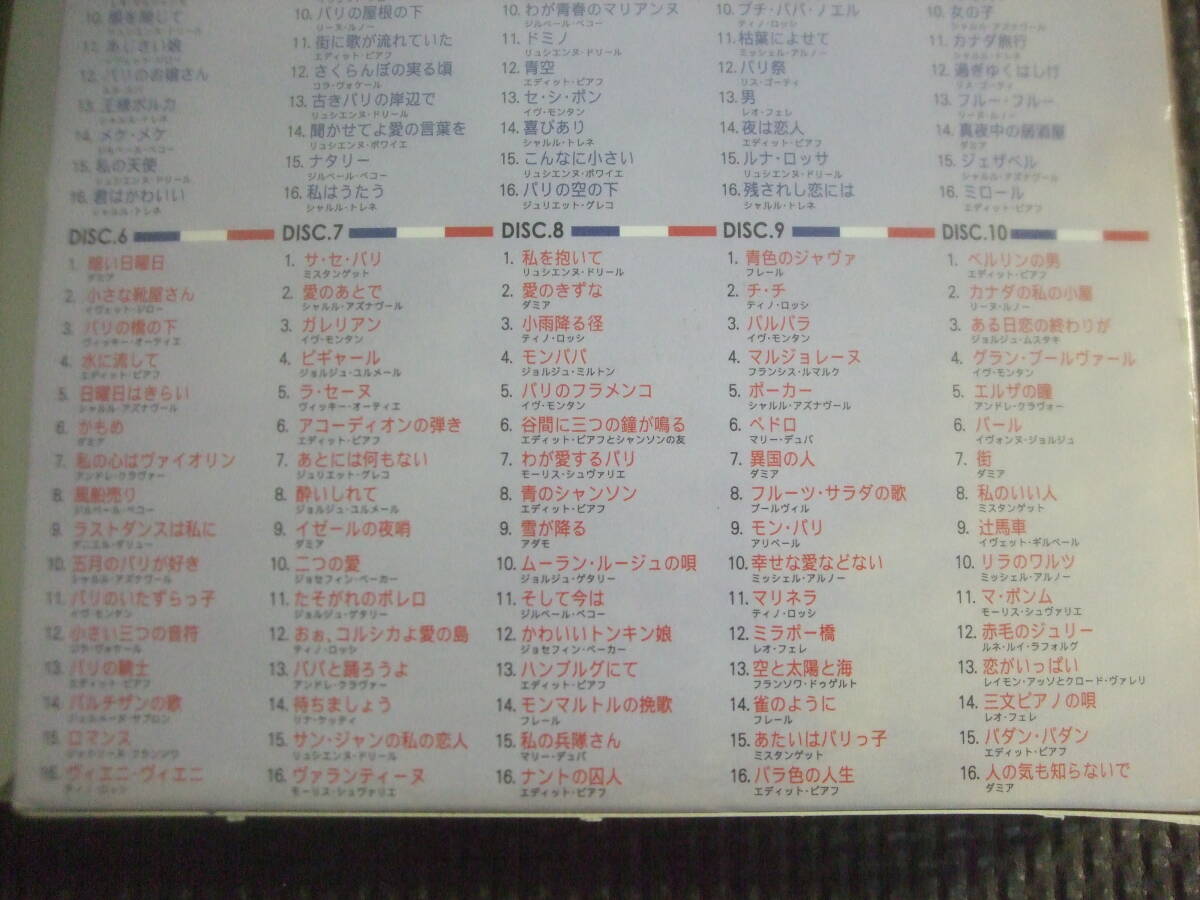 10. 頬を隠して
12. あじさい娘
イヴェット・ジロー
12. パリのお嬢さん
13. 王様ポルカ
シャルル・トレネ
14. メケ・メケ
ジルベール・ベコー
15. 私の天使
リュシエンヌ・ドリール
16. 君はかわいい
シャルル・トレネ
10. パリの屋根の下
リーヌ・ルノー
11. 街に歌が流れていた
エディット・ピアフ
12. さくらんぼの実る頃
コラ・ヴォケール
13. 古きパリの岸辺で
リュシエンヌ・ドリール
14. 聞かせてよ愛の言葉を
リュシエンヌ・ボワイエ
15. ナタリー
ジルベール・ベコー
16. 私はうたう
シャルル・トレネ
10. わが青春のマリアンヌ
ジルベール・ベコー
11. ドミノ
リュシエンヌ・ドリール
12. 青空
エディット・ピアフ
13. セ・シ・ボン
イヴ・モンタン
14. 喜びあり
シャルル・トレネ
15. こんなに小さい
リュシエンヌ・ボワイエ
16. パリの空の下
ジュリエット・グレコ
10. プチ・パパ・ノエル
ティノ・ロッシ
11. 枯葉によせて
ミッシェル・アルノー
12. パリ祭
リス・ゴーティ
13. 男
レオ・フェレ
14. 夜は恋人
エディット・ピアフ
15. ルナ・ロッサ
リュシエンヌ・ドリール
16. 残されし恋には
シャルル・トレネ
10. 女の子
シャルル・アズナヴール
11. カナダ旅行
シャルル・トレネ
12. 過ぎゆくはしけ
リス・ゴーティ
13. フルー・フルー
リーヌ・ルノー
14. 真夜中の居酒屋
ダミア
15. ジェザベル
シャルル・アズナヴール
16. ミロール
エディット・ピアフ
DISC.6
1. 暗い日曜日
ダミア
2. 小さな靴屋さん
イヴェット・ジロー
3. パリの橋の下
ヴィッキー・オーティエ
4. 水に流して
エディット・ピアフ
5. 日曜日はきらい
シャルル・アズナヴール
6. かもめ
ダミア
7. 私の心はヴァイオリン
アンドレ・クラヴァー
8. 風船売り
ジルベール・ベコー
9. ラストダンスは私に
ダニエル・ダリュー
10. 五月のパリが好き
シャルル・アズナヴール
11. パリのいたずらっ子
イヴ・モンタン
12. 小さい三つの音符
コラ・ヴォケール
13. パリの騎士
エディット・ピアフ
14. パルチザンの歌
ジェルメーヌ・サブロン
15. ロマンス
ジャクリーヌ・フランソワ
16. ヴィエニ・ヴィエニ
ティノ・ロッシ
DISC.7
1. サ・セ・パリ
ミスタンゲット
2. 愛のあとで
シャルル・アズナヴール
3. ガレリアン
イヴ・モンタン
4. ピギャール
ジョルジュ・ユルメール
5. ラ・セーヌ
ヴィッキー・オーティエ
6. アコーディオンの弾き
エディット・ピアフ
7. あとには何もない
ジュリエット・グレコ
8. 酔いしれて
ジョルジュ・ユルメール
9. イゼールの夜哨
ダミア
10. 二つの愛
ジョセフィン・ベーカー
11. たそがれのボレロ
ジョルジュ・ゲタリー
12. おぉ、コルシカよ愛の島
ティノ・ロッシ
13. パパと踊ろうよ
アンドレ・クラヴァー
14. 待ちましょう
リナ・ケッティ
15. サン・ジャンの私の恋人
リュシエンヌ・ドリール
16. ヴァランティーヌ
モーリス・シュヴァリエ
DISC.8
1. 私を抱いて
リュシエンヌ・ドリール
2. 愛のきずな
ダミア
3. 小雨降る径
ティノ・ロッシ
4. モンパパ
ジョルジュ・ミルトン
5. パリのフラメンコ
イヴ・モンタン
6. 谷間に三つの鐘が鳴る
エディット・ピアフとシャンソンの友
7. わが愛するパリ
モーリス・シュヴァリエ
8. 青のシャンソン
エディット・ピアフ
9. 雪が降る
アダモ
10. ムーラン・ルージュの唄
ジョルジュ・ゲタリー
11. そして今は
ジルベール・ベコー
12. かわいいトンキン娘
ジョセフィン・ベーカー
13. ハンブルグにて
エディット・ピアフ
14. モンマルトルの挽歌
フレール
15. 私の兵隊さん
マリー・デュバ
16. ナントの囚人
エディット・ピアフ
DISC.9
1. 青色のジャヴァ
フレール
2. チ・チ
ティノ・ロッシ
3. バルバラ
イヴ・モンタン
4. マルジョレーヌ
フランシス・ルマルク
5. ポーカー
シャルル・アズナヴール
6. ペドロ
マリー・デュバ
7. 異国の人
ダミア
8. フルーツ・サラダの歌
ブールヴィル
9. モン・パリ
アリベール
10. 幸せな愛などない
ミッシェル・アルノー
11. マリネラ
ティノ・ロッシ
12. ミラボー橋
レオ・フェレ
13. 空と太陽と海
フランソワ・ドゥゲルト
14. 雀のように
フレール
15. あたいはパリっ子
ミスタンゲット
16. バラ色の人生
エディット・ピアフ
DISC.10
1. ベルリンの男
エディット・ピアフ
2. カナダの私の小屋
リーヌ・ルノー
3. ある日恋の終わりが
ジョルジュ・ムスタキ
4. グラン・ブールヴァール
イヴ・モンタン
5. エルザの瞳
アンドレ・クラヴォー
6. パール
イヴォンヌ・ジョルジュ
7. 街
ダミア
8. 私のいい人
ミスタンゲット
9. 辻馬車
イヴェット・ギルベール
10. リラのワルツ
ミッシェル・アルノー
11. マ・ポンム
モーリス・シュヴァリエ
12. 赤毛のジュリー
ルネ・ルイ・ラフォルグ
13. 恋がいっぱい
レイモン・アッソとクロード・ヴァレリ
14. 三文ピアノの唄
レオ・フェレ
15. パダン・パダン
エディット・ピアフ
16. 人の気も知らないで
ダミア